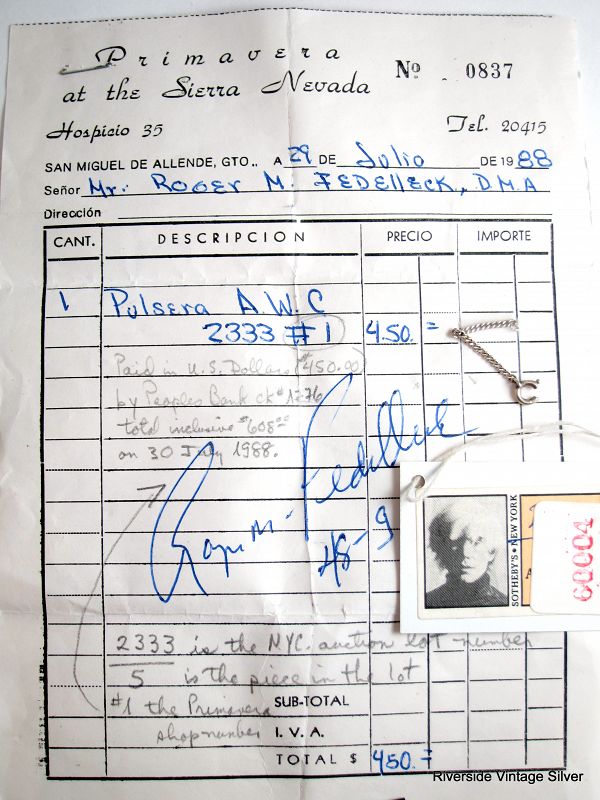 Primavera
at the Sierra Nevada
Nº 0837
Hospicio 35
Tel. 20415
SAN MIGUEL DE ALLENDE, GTO., A 29 DE Julio DE 1988
Señor Mr. Roger M. Fedelleck, DMA
Dirección
CANT. DESCRIPCION PRECIO IMPORTE
1 Pulsera A.W.C
2333 #1 450. =
Paid in U.S. Dollars ($450.00)
by Peoples Bank ck #1276
total inclusive $608.00
on 30 July 1988.
Roger M. Fedelleck
SOTHEBY'S • NEW YORK
60004
2333 is the NYC. auction lot number
5 is the piece in the lot
#1 the Primavera
shop number
SUB-TOTAL
I. V. A.
TOTAL $ 450.=
Riverside Vintage Silver